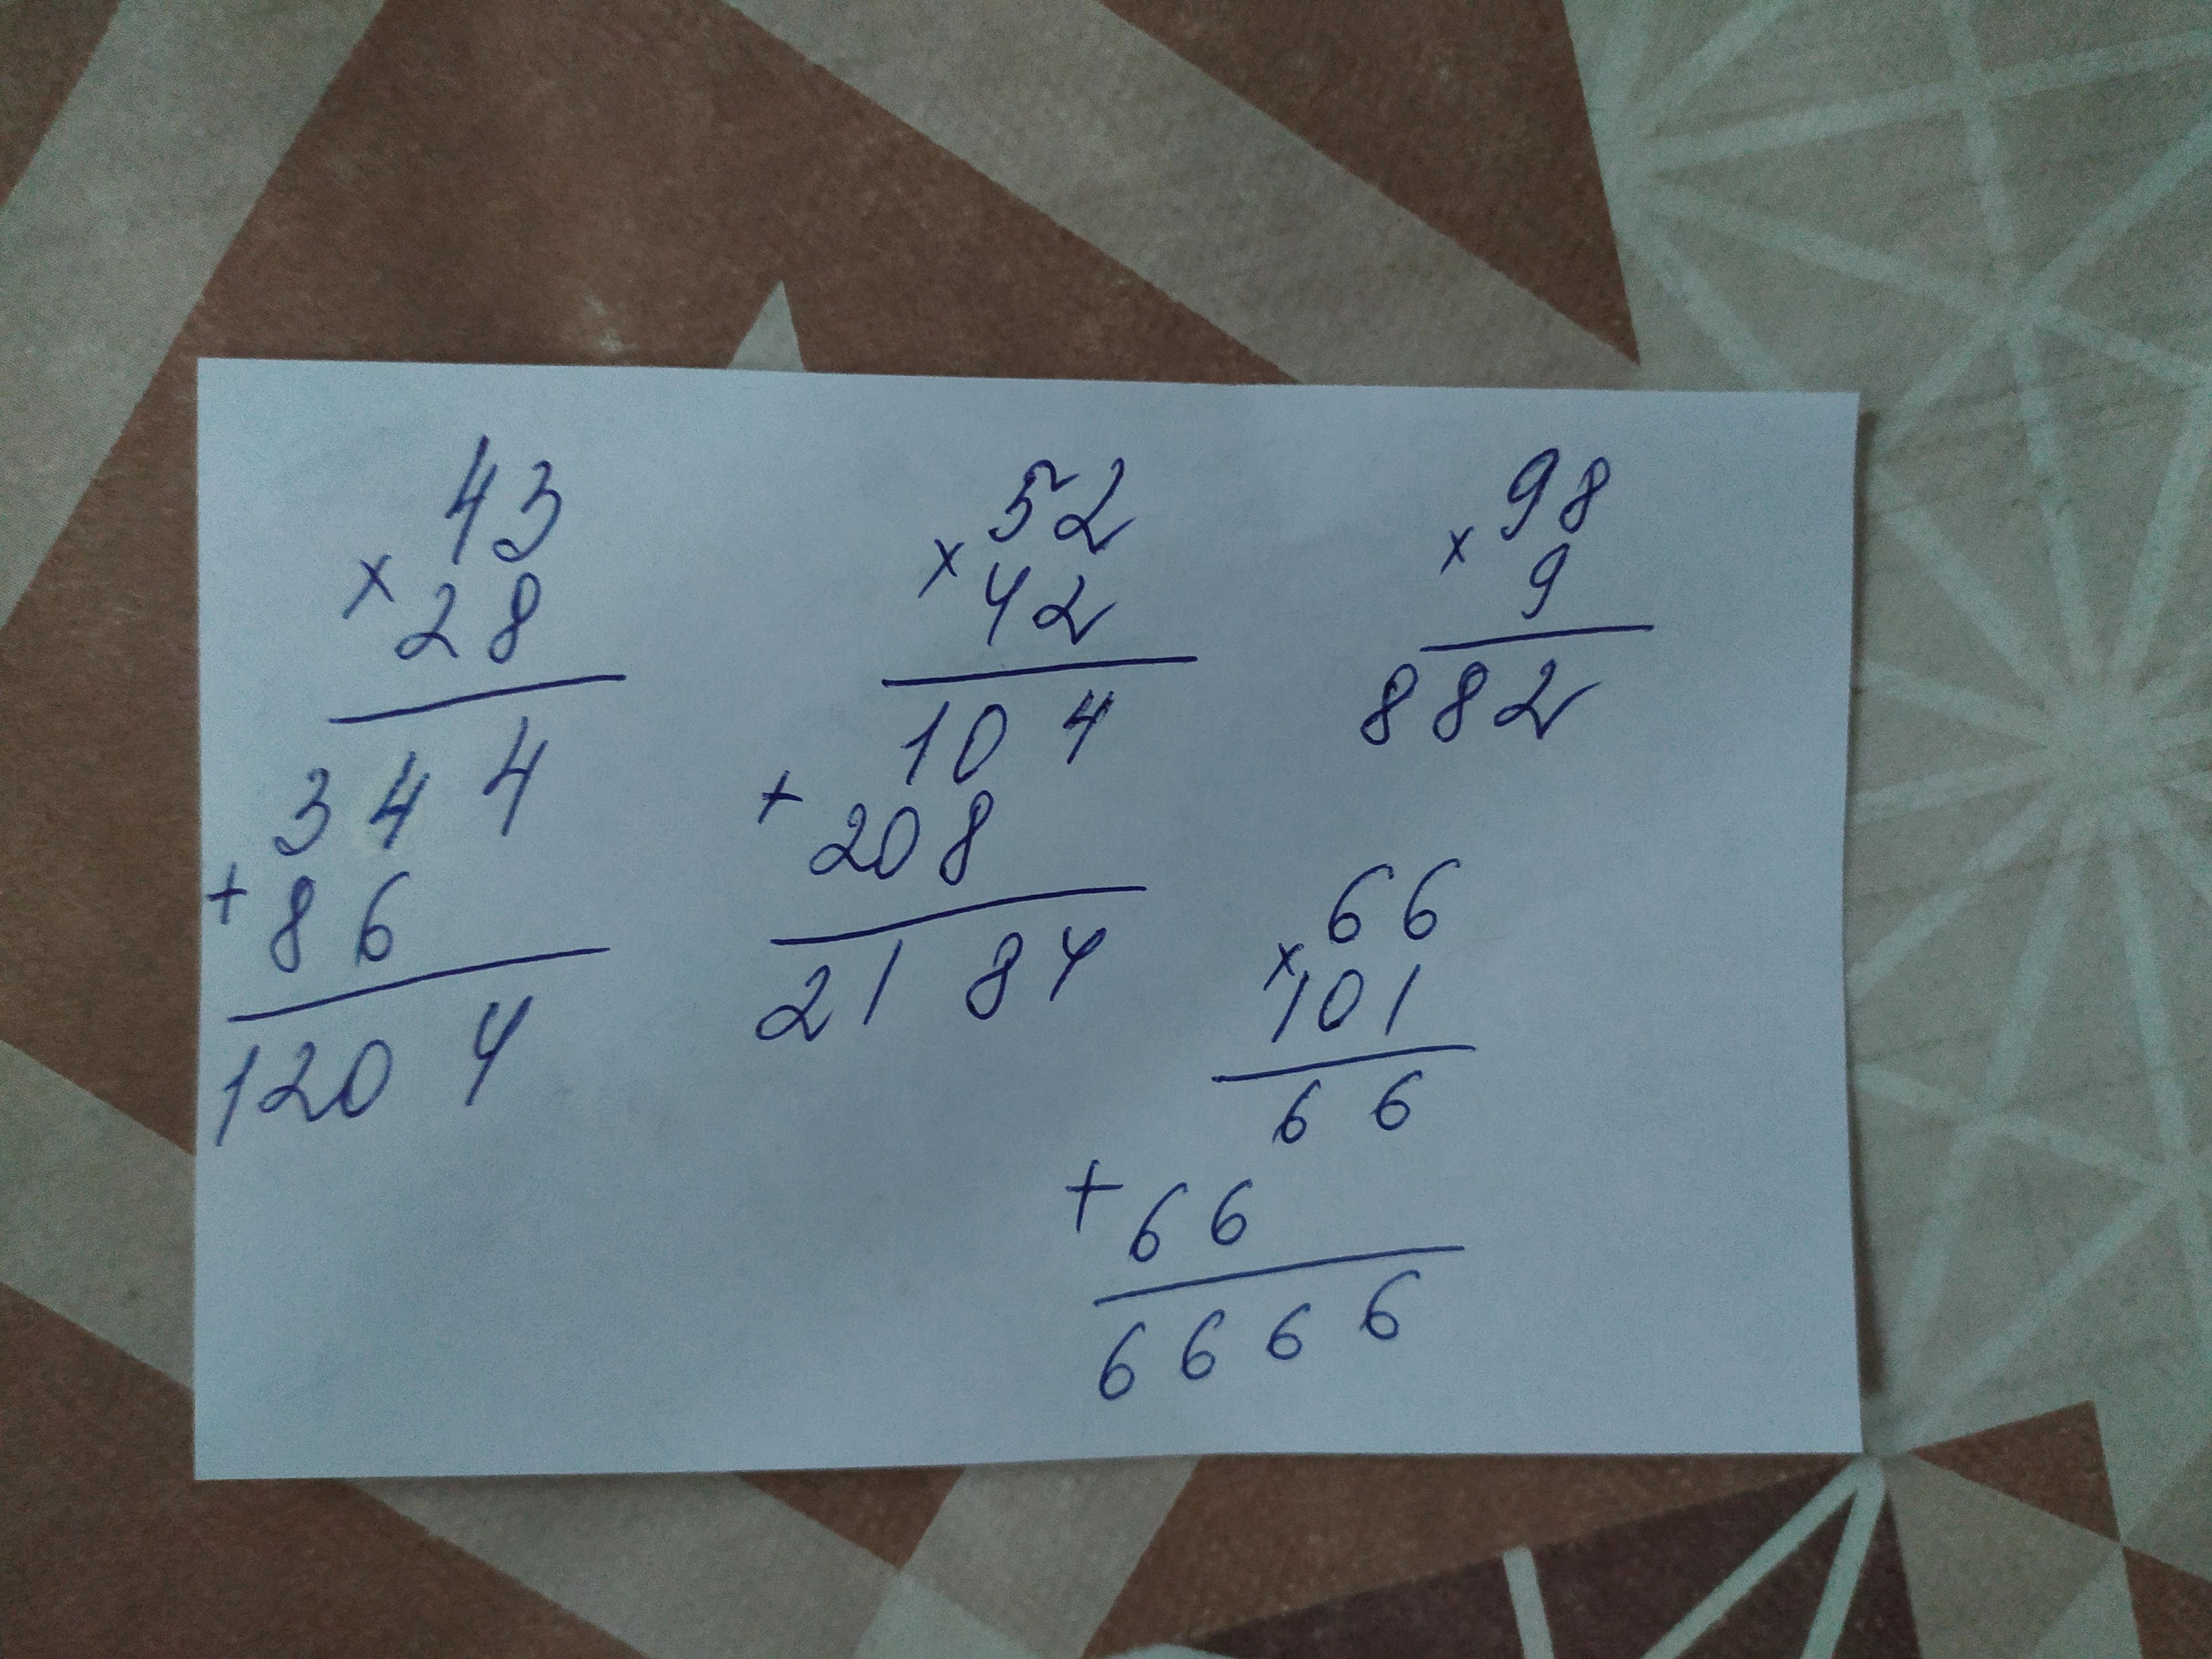 43
× 28
344
+ 86
1204
52
× 42
104
+ 208
2184
98
× 9
882
66
× 101
66
+ 66
6666